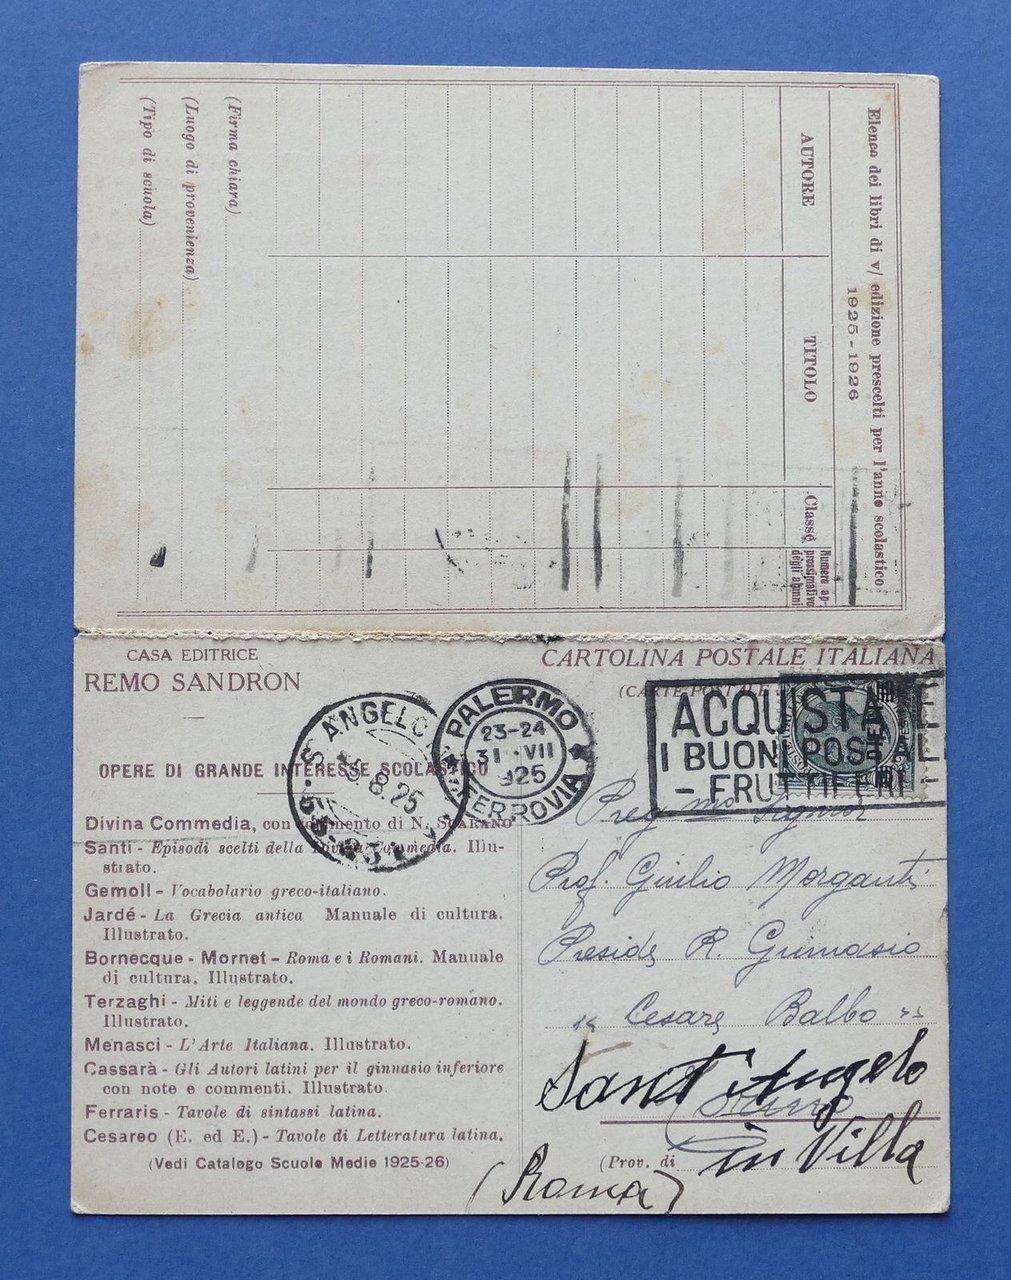 Elenco dei libri di v/ edizione prescelti per l'anno scolastico
1925-1926
AUTORE
TITOLO
Classe
Numero ap-
prossimativo
degli alunni
(Firma chiara)
(Luogo di provenienza)
(Tipo di scuola)
CASA EDITRICE
REMO SANDRON
OPERE DI GRANDE INTERESSE SCOLASTICO
Divina Commedia, con commento di N. SCARANO
Santi - Episodi scelti della Divina Commedia. Illu-
strato.
Gemoll - Vocabolario greco-italiano.
Jardé - La Grecia antica Manuale di cultura.
Illustrato.
Bornecque - Mornet - Roma e i Romani. Manuale
di cultura. Illustrato.
Terzaghi - Miti e leggende del mondo greco-romano.
Illustrato.
Menasci - L'Arte Italiana. Illustrato.
Cassarà - Gli Autori latini per il ginnasio inferiore
con note e commenti. Illustrato.
Ferraris - Tavole di sintassi latina.
Cesareo (E. ed E.) - Tavole di Letteratura latina.
(Vedi Catalogo Scuole Medie 1925-26)
S. ANGELO
5.8.25
PALERMO
23-24
31 · VII
925
FERROVIA
CARTOLINA POSTALE ITALIANA
(CARTE POSTALE
ACQUISTATE
I BUONI POSTALI
- FRUTTIFERI -
Preg mo Signor
Prof. Giulio Morganti
Preside R. Ginnasio
"Cesare Balbo"
Sant'Angelo
(Prov. di
in Villa
(Roma)